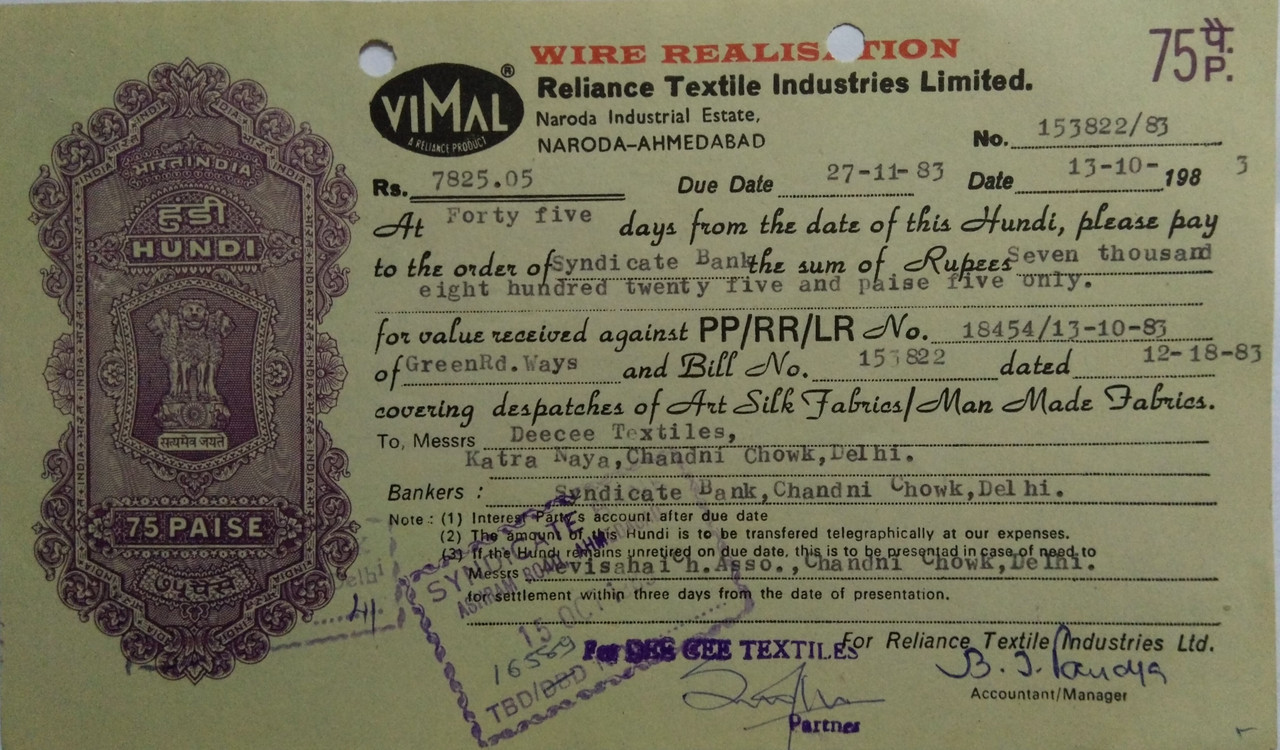 WIRE REALISATION
75 पै. P.
VIMAL ®
A RELIANCE PRODUCT
Reliance Textile Industries Limited.
Naroda Industrial Estate,
NARODA-AHMEDABAD
No. 153822/83
Rs. 7825.05 Due Date 27-11-83 Date 13-10-1983
At Forty five days from the date of this Hundi, please pay
to the order of Syndicate Bank the sum of Rupees Seven thousand
eight hundred twenty five and paise five only.
for value received against PP/RR/LR No. 18454/13-10-83
of GreenRd.Ways and Bill No. 153822 dated 12-18-83
covering despatches of Art Silk Fabrics/Man Made Fabrics.
To, Messrs Deecee Textiles,
Katra Naya,Chandni Chowk,Delhi.
Bankers : Syndicate Bank,Chandni Chowk,Delhi.
Note : (1) Interest Party's account after due date
(2) The amount of this Hundi is to be transfered telegraphically at our expenses.
(3) If the Hundi remains unretired on due date, this is to be presented in case of need to
Messrs Devisahai h.Asso.,Chandni Chowk,Delhi.
for settlement within three days from the date of presentation.
For Reliance Textile Industries Ltd.
B. J. Pandya
Accountant/Manager
For DEE CEE TEXTILES
Partner
SYNDICATE
ASHRAM ROAD, AHMEDABAD
15 OCT
16559
TBD/DBD
Delhi
भारत INDIA
हुंडी
HUNDI
सत्यमेव जयते
75 PAISE
७५ पैसे